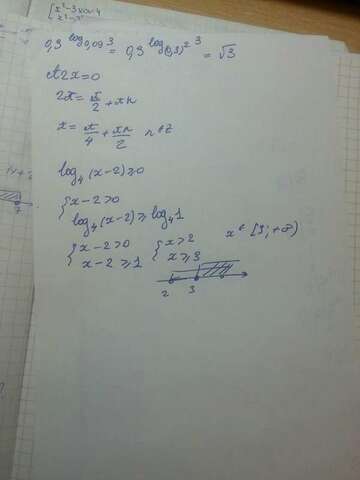 0,3^log_0,09 3 = 0,3^log_(0,3)^2 3 = √3
ctg2x=0
2x= π/2 + πn
x= π/4 + πn/2 n∈Z
log₄(x-2)≥0
{x-2>0
log₄(x-2)≥log₄1
{x-2>0 {x>2 x∈[3;+∞)
x-2≥1 x≥3
2 3
7